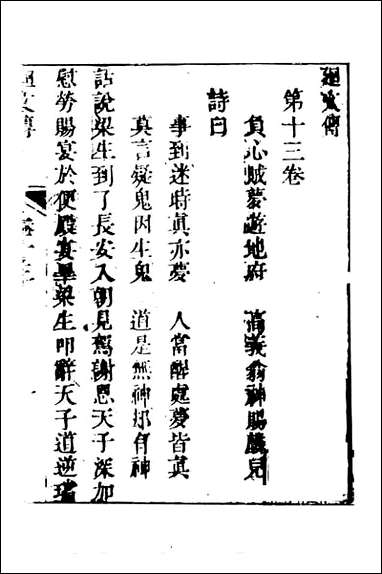 廻文傳
第十三卷
負心賊夢遊地府 高義翁神賜麟兒
詩曰
事到迷時眞亦夢 人當醒處夢皆眞
莫言疑鬼因生鬼 道是無神却有神
話說梁生到了長安入朝見駕謝恩天子深加
慰勞賜宴於便殿宴畢梁生叩辭天子道逆瑞
廻文傳 卷十三